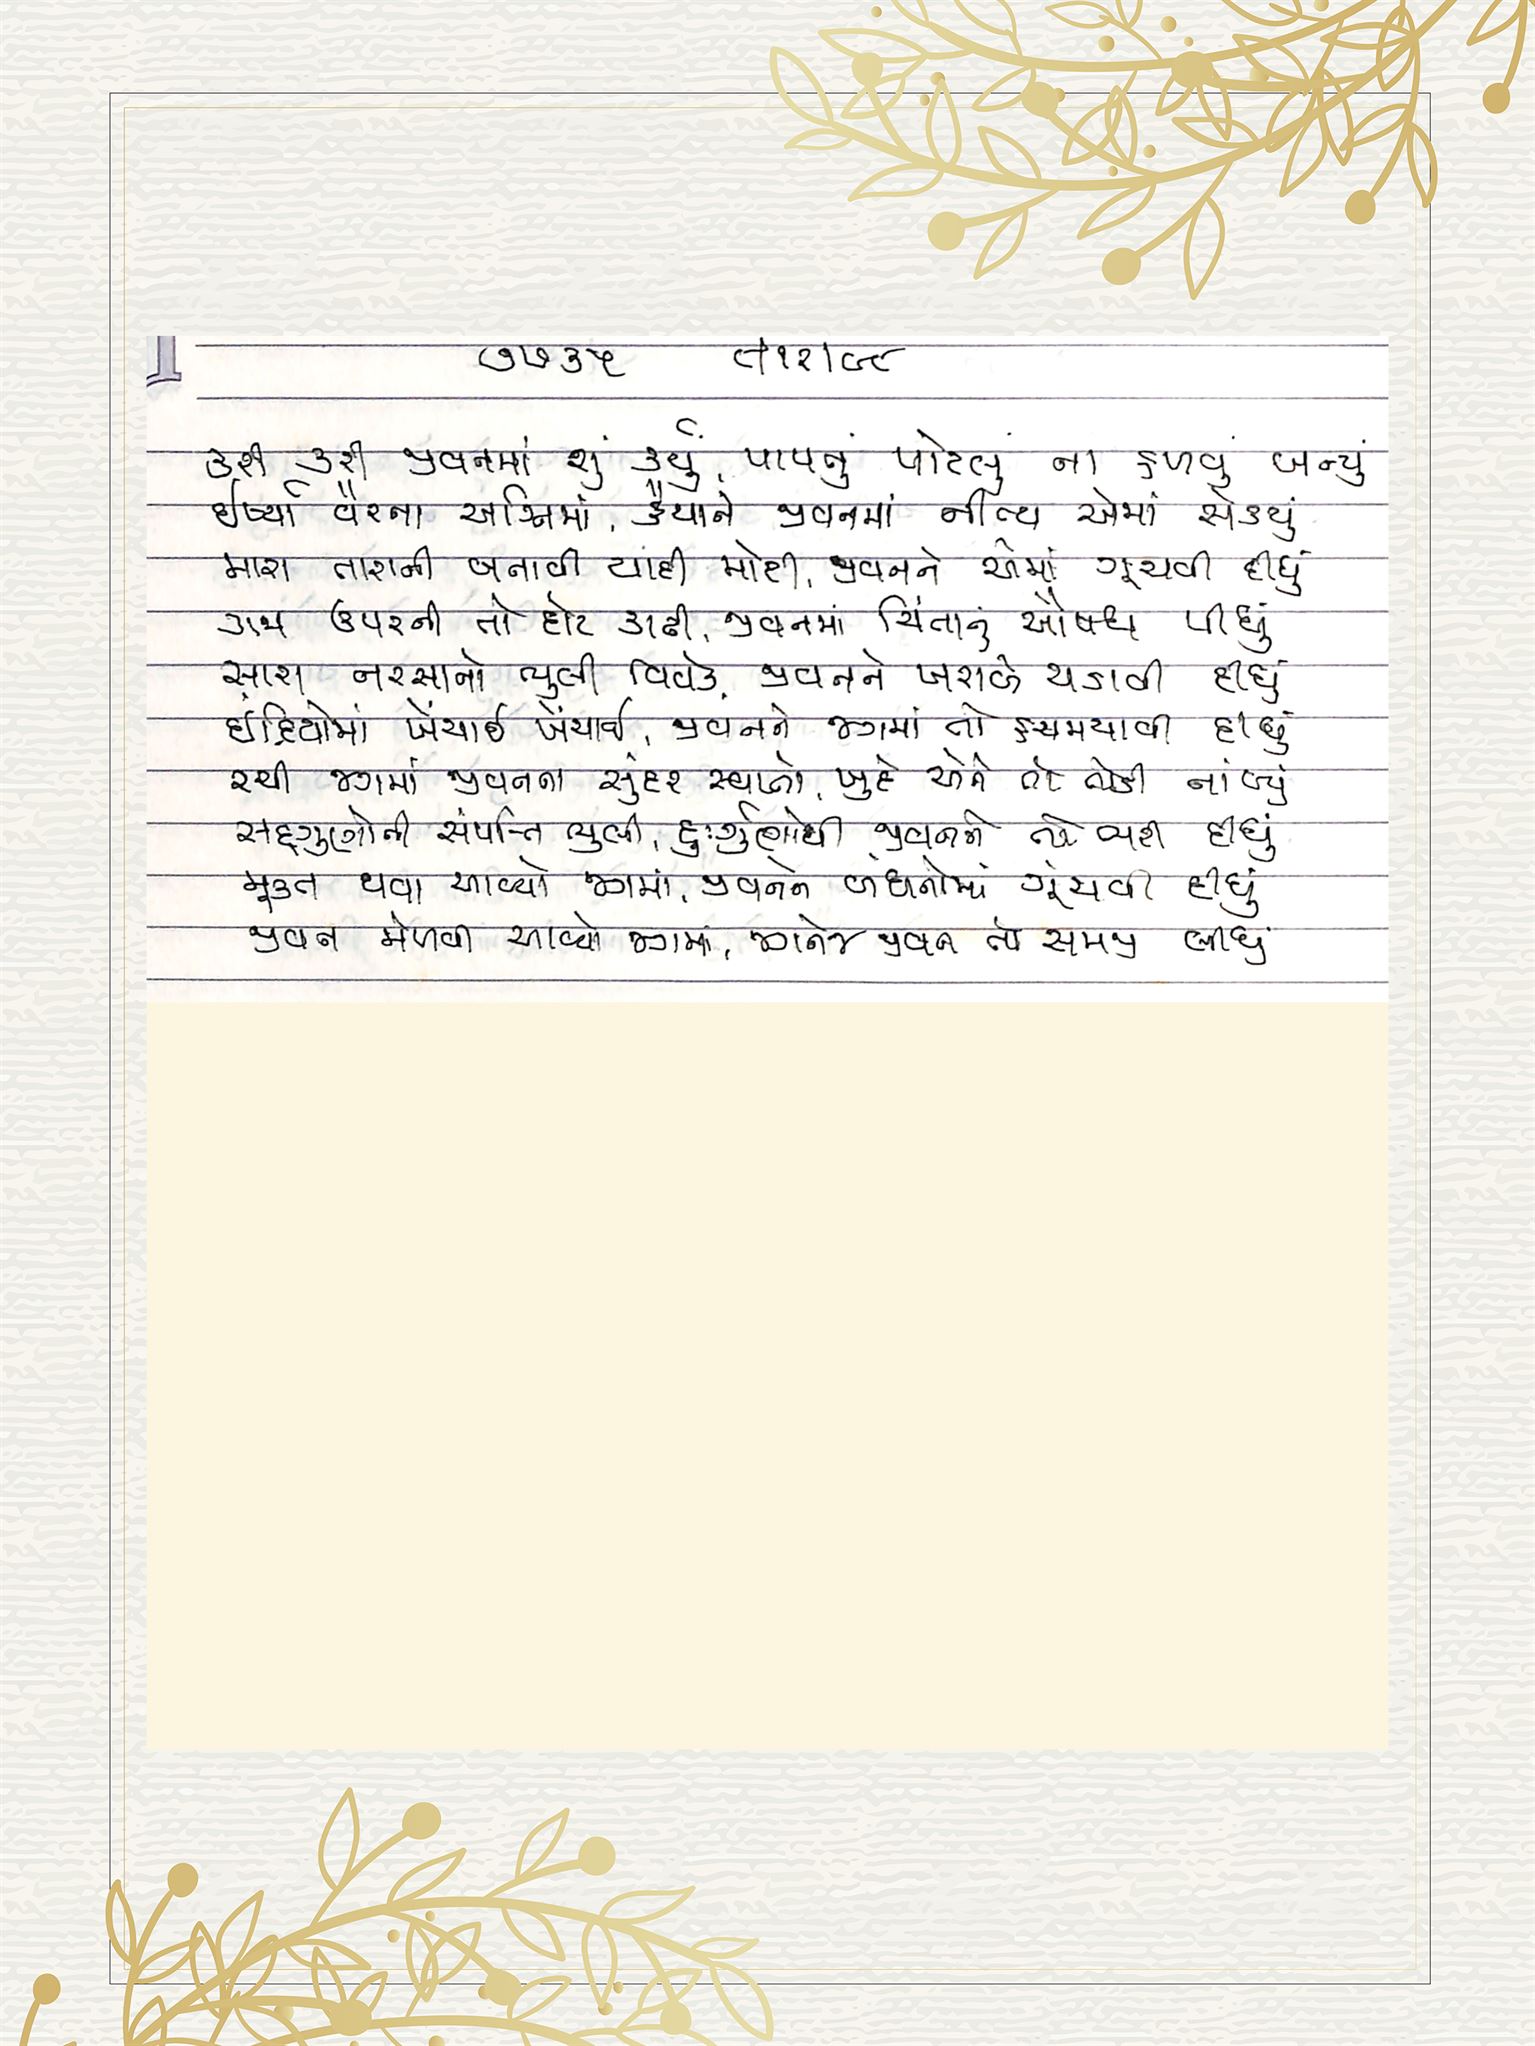 ૭૭૩૫ નારાજ
કરી કરી જીવનમાં શું કર્યું, પાપનું પોટલું ના હળવું બન્યું
ઈર્ષ્યા વૈરના અગ્નિમાં, હૈયાને જીવનમાં નીત્ય એમાં સેક્યું
મારા તારાની બનાવી યાદી મોટી, જીવનને એમાં ગૂંચવી દીધું
ગજા ઉપરની તો દોટ કાઢી, જીવનમાં ચિંતાનું ઔષધ પીધું
સારા નરસાનો ભુલી વિવેક, જીવનને ખરાબે ચડાવી દીધું
ઈંદ્રિયોમાં ખેંચાઈ ખેંચાઈ, જીવનને જગમાં તો હચમચાવી દીધું
રચી જગમાં જીવનના સુંદર સ્વપ્નો, ખુદે એને તો તોડી નાંખ્યું
સદ્દગુણોની સંપત્તિ ભુલી, દુઃર્ગુણોથી જીવનને તો ભરી દીધું
મૂક્ત થવા આવ્યો જગમાં, જીવનને બંધનોમાં ગૂંચવી દીધું
જીવન મેળવી આવ્યો જગમાં, જગનેજ જીવન તો સમજી લીધું